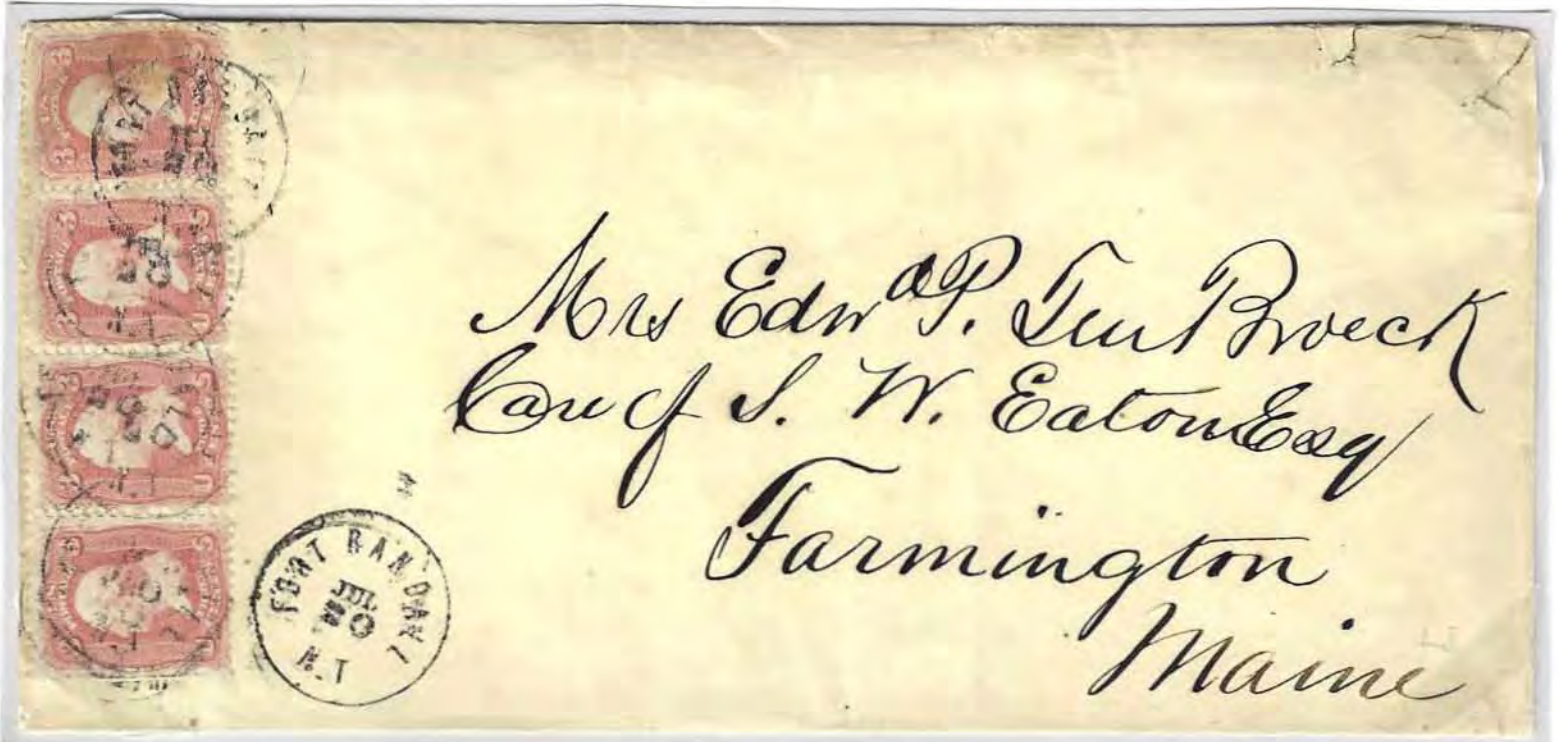 Mrs Edwd P. Ten Broeck
Care of S. W. Eaton Esq
Farmington
Maine
FORT RANDALL
JUL
20
N.T
3 3
3 3
3 3
3 3